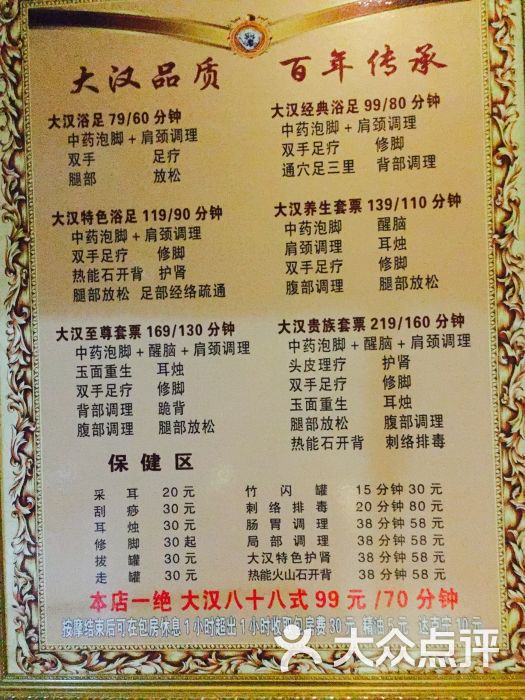 大汉品质 百年传承
大汉浴足 79/60 分钟
中药泡脚 + 肩颈调理
双手 足疗
腿部 放松
大汉经典浴足 99/80 分钟
中药泡脚 + 肩颈调理
双手足疗 修脚
通穴足三里 背部调理
大汉特色浴足 119/90 分钟
中药泡脚 + 肩颈调理
双手足疗 修脚
热能石开背 护肾
腿部放松 足部经络疏通
大汉养生套票 139/110 分钟
中药泡脚 醒脑
肩颈调理 耳烛
双手足疗 修脚
腹部调理 腿部放松
大汉至尊套票 169/130 分钟
中药泡脚 + 醒脑 + 肩颈调理
玉面重生 耳烛
双手足疗 修脚
背部调理 跪背
腹部调理 腿部放松
大汉贵族套票 219/160 分钟
中药泡脚 + 醒脑 + 肩颈调理
头皮理疗 护肾
双手足疗 修脚
玉面重生 耳烛
腿部放松 腹部调理
热能石开背 刺络排毒
保健区
采耳 20 元
刮痧 30 元
耳烛 30 元
修脚 30 起
拔罐 30 元
走罐 30 元
竹闪罐 15 分钟 30 元
刺络排毒 20 分钟 80 元
肠胃调理 38 分钟 58 元
局部调理 38 分钟 58 元
大汉特色护肾 38 分钟 58 元
热能火山石开背 38 分钟 58 元
本店一绝 大汉八十八式 99 元 /70 分钟
按摩结束后可在包房休息 1 小时超出 1 小时收取包房费 30 元 精油 5 元 达克宁 10 元
大众点评